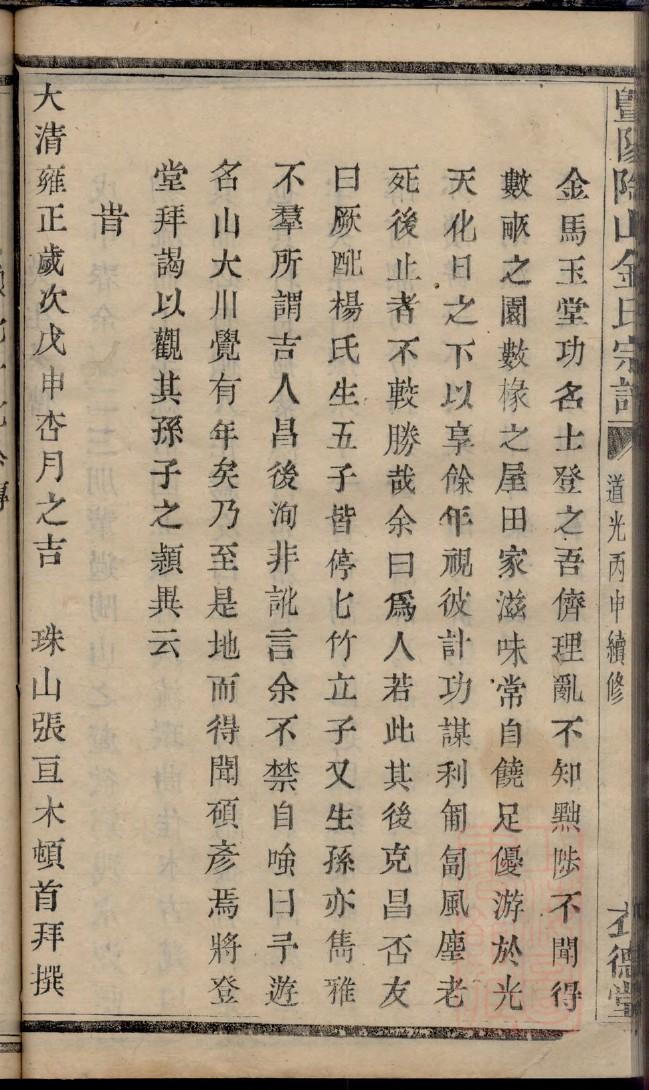 暨陽陶山金氏宗譜
道光丙申續修
德堂
金馬玉堂功名士登之吾儕理亂不知黜陟不聞得
數畝之園數椽之屋田家滋味常自饒足優游於光
天化日之下以享餘年視彼計功謀利匍匐風塵老
死後止者不較勝哉余曰爲人若此其後克昌否友
曰厥配楊氏生五子皆停七竹立子又生孫亦雋雅
不羣所謂吉人昌後洵非訛言余不禁自嗤曰予遊
名山大川覺有年矣乃至是地而得聞碩彥焉將登
堂拜謁以觀其孫子之頴異云
旹
大清雍正歲次戊申杏月之吉 珠山張亘木頓首拜撰